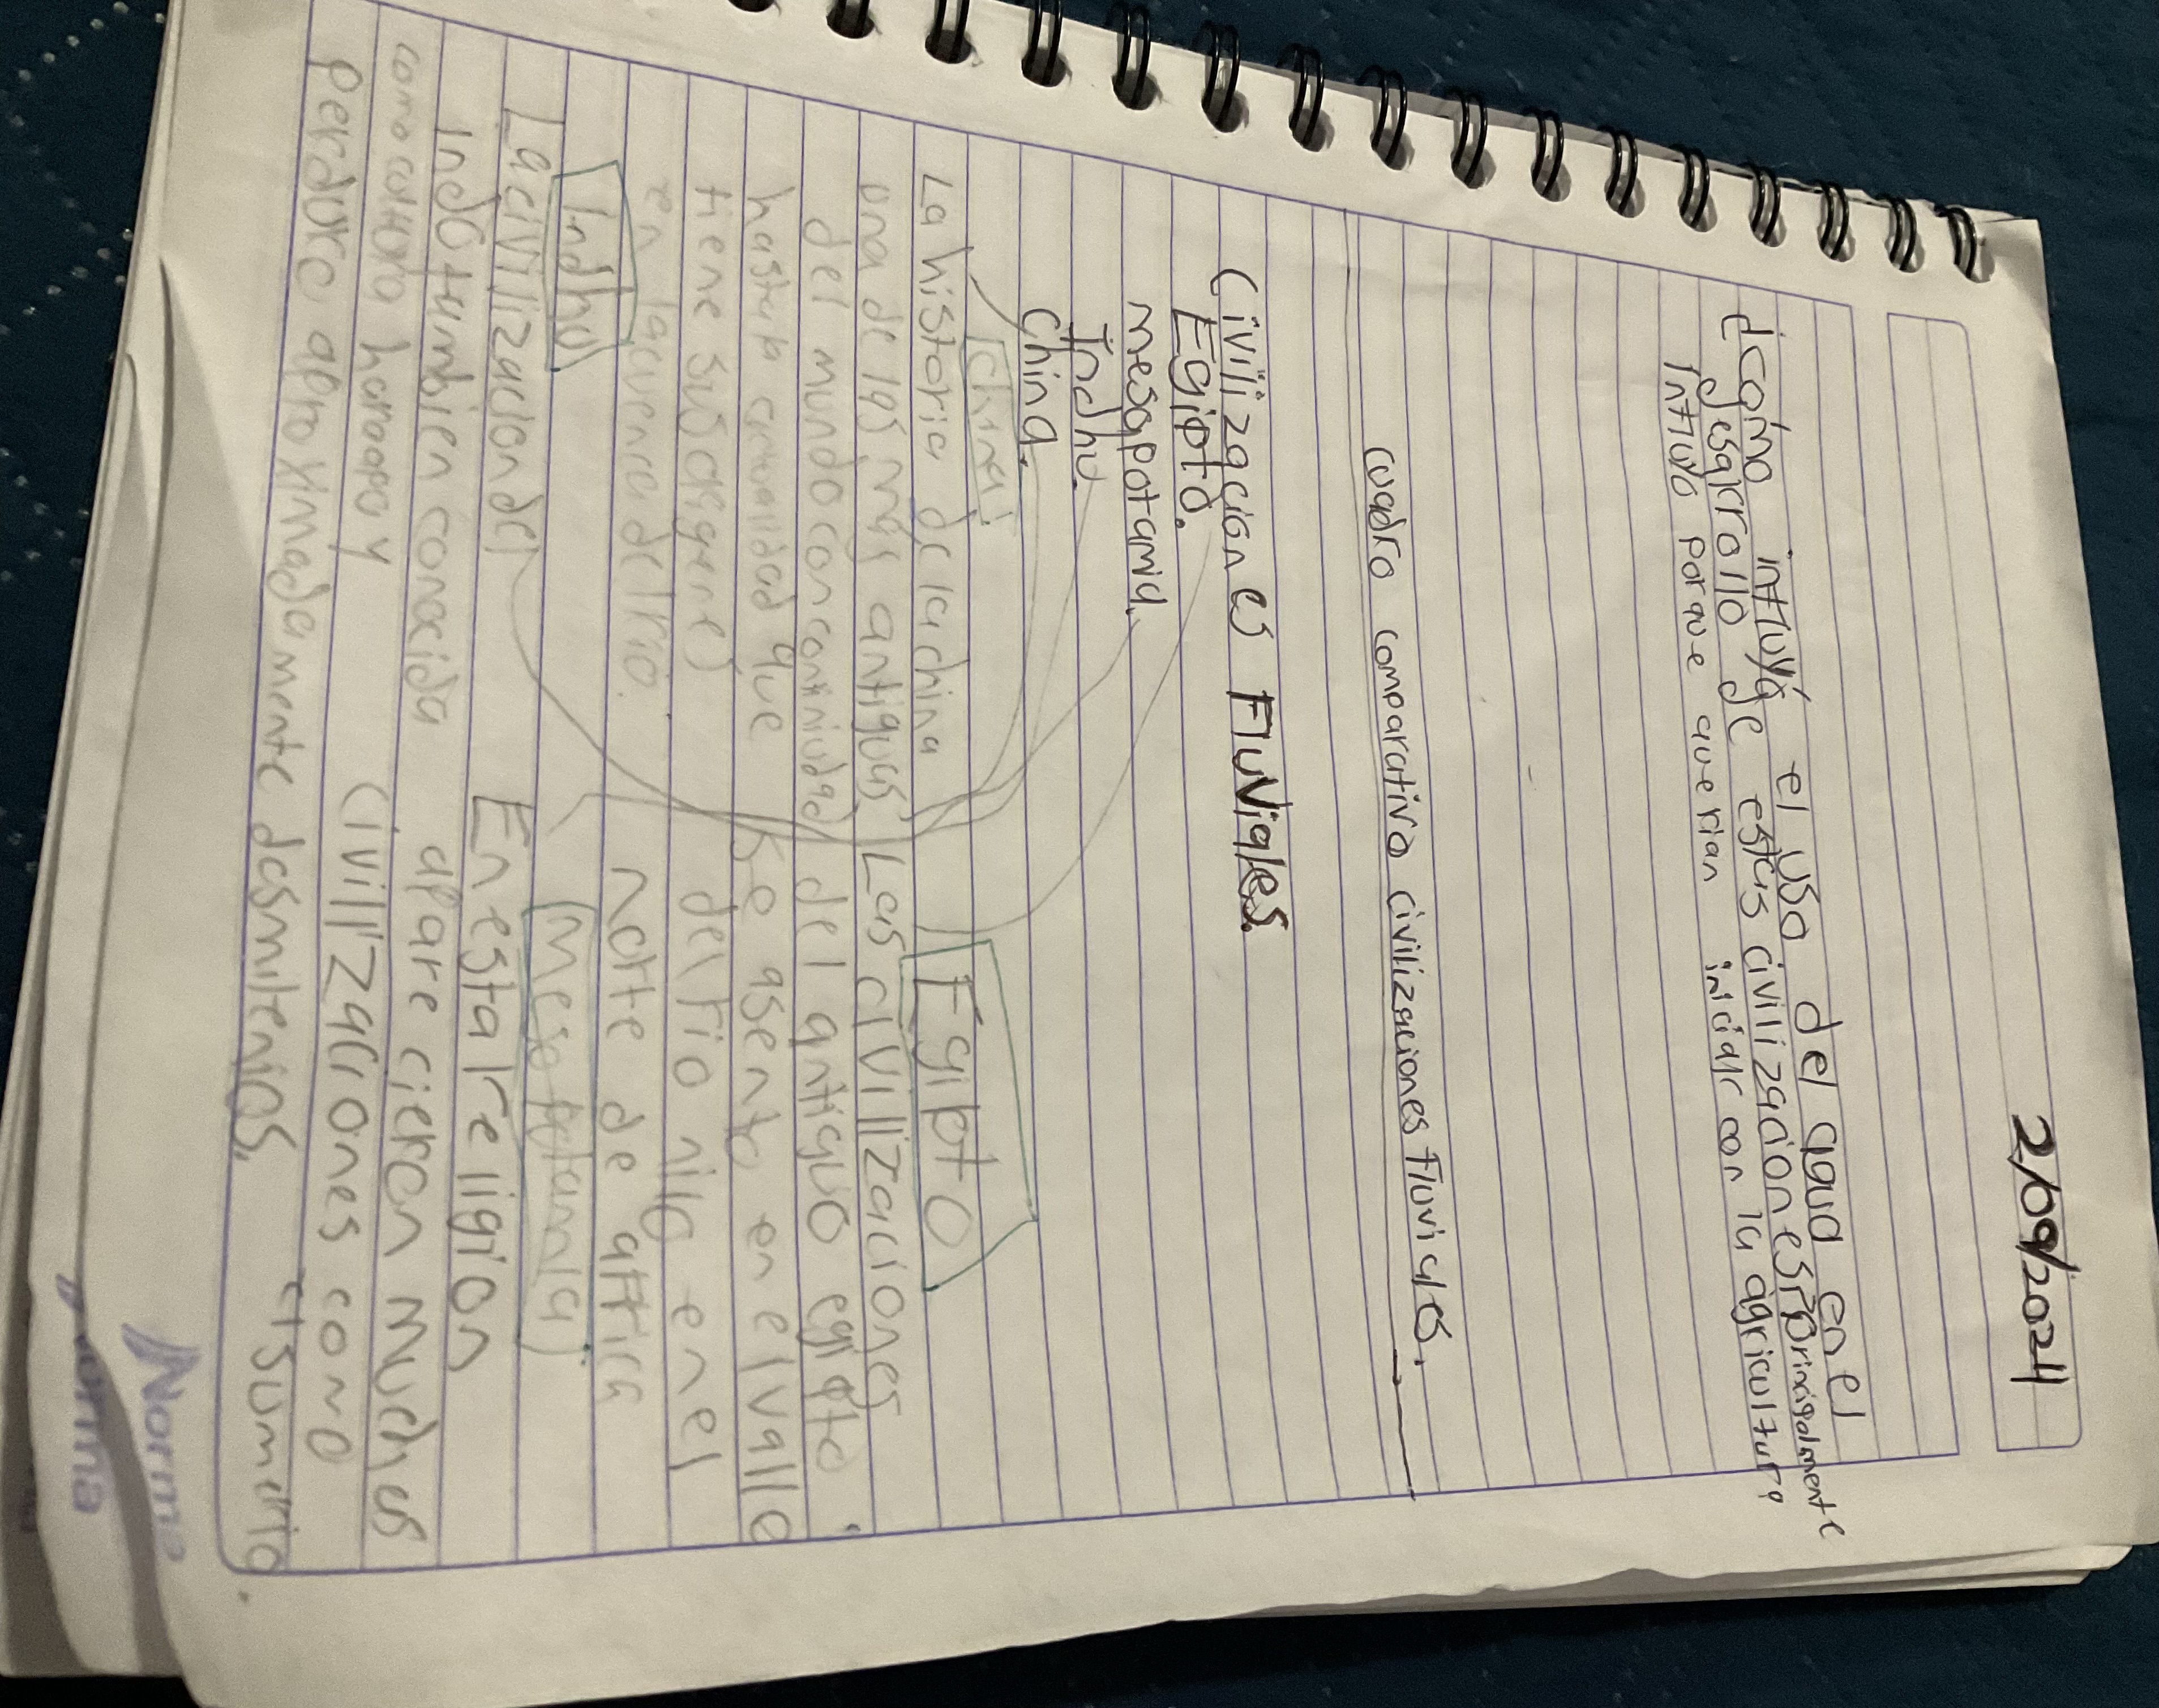 2/09/2024
¿cómo influyó el uso del agua en el
desarrollo de estas civilizaciones principalmente
Influyó porque querian iniciar con la agricultura
cuadro comparativo civilizaciones Fluviales.
Civilizaciones Fluviales.
Egipto.
mesopotamia.
Indhu.
China.
China
La historia de la china
una de las más antiguas
del mundo con continuidad
hasta actualidad que
tiene sus origene)
en la cuenca del rio.
Egipto
Las civilizaciones
del antiguo egipto.
Se asento en el valle
del rio nilo en el
norte de africa
Indhu
La civilizacion del
indo tambien conocida
como cultura harappa y
perduro aproximadamente dosmilenios.
Mesopotamia
En esta religion
apare cieron muchas
civilizaciones como
la sumeria.
Norma
Norma